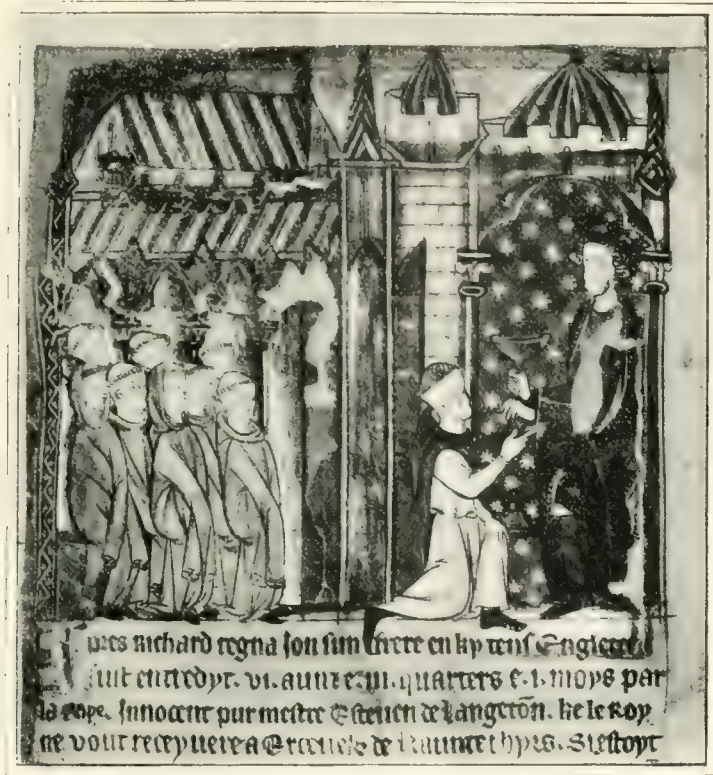 pres Richard regna Jon sun frere en ky tens Engletere
fuit entredyt. vi. aunz e. iii. quarters e. i. moys par
la Pape. Innocent pur mestre Esteuen de Langeton. ke le Roy
ne vout receyuere a de Kaunterbyrs. Si estoyt